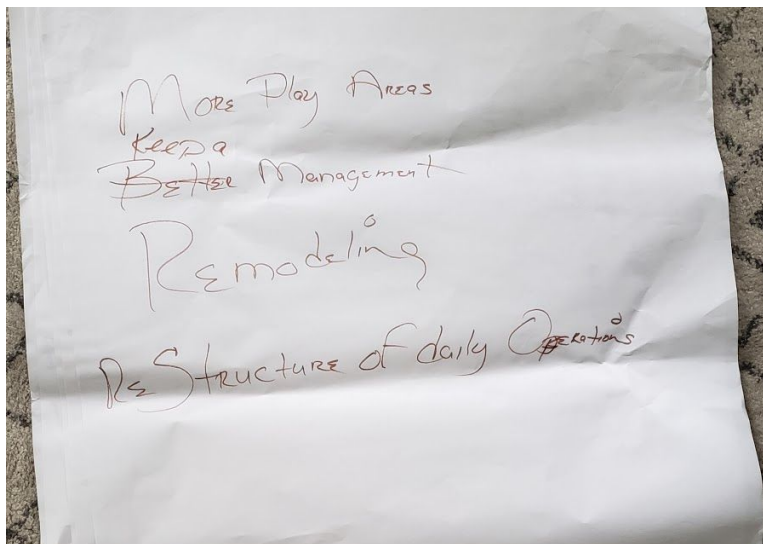 More Play Areas
Keep a
Better Management
Remodeling
ReStructure of daily Operations